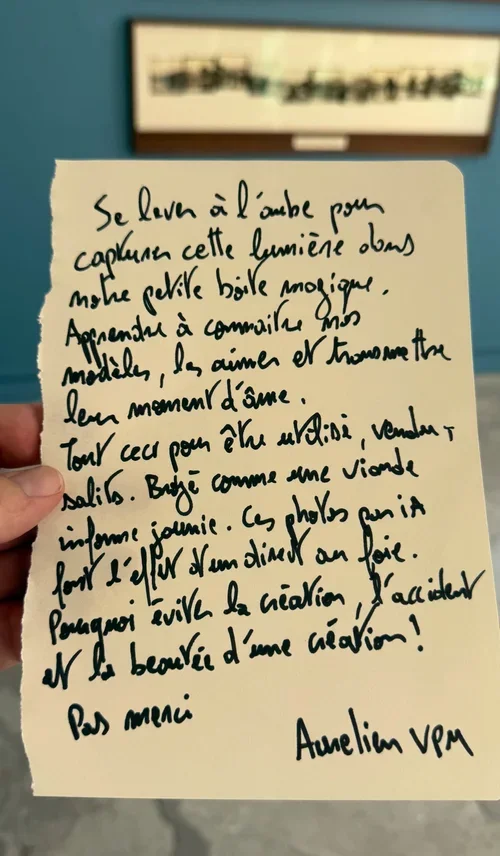 Se lever à l'aube pour
capturer cette lumière dans
notre petite boîte magique.
Apprendre à connaître nos
modèles, les aimer et transmettre
leur moment d'âme.
Tout ceci pour être utilisé, vendu,
salits. Broyé comme une viande
informe jaunie. Ces photos par iA
font l'effet d'un direct au foie.
Pourquoi éviter la création, l'accident
et la beautée d'une création!
Pas merci
Aurelien VPM